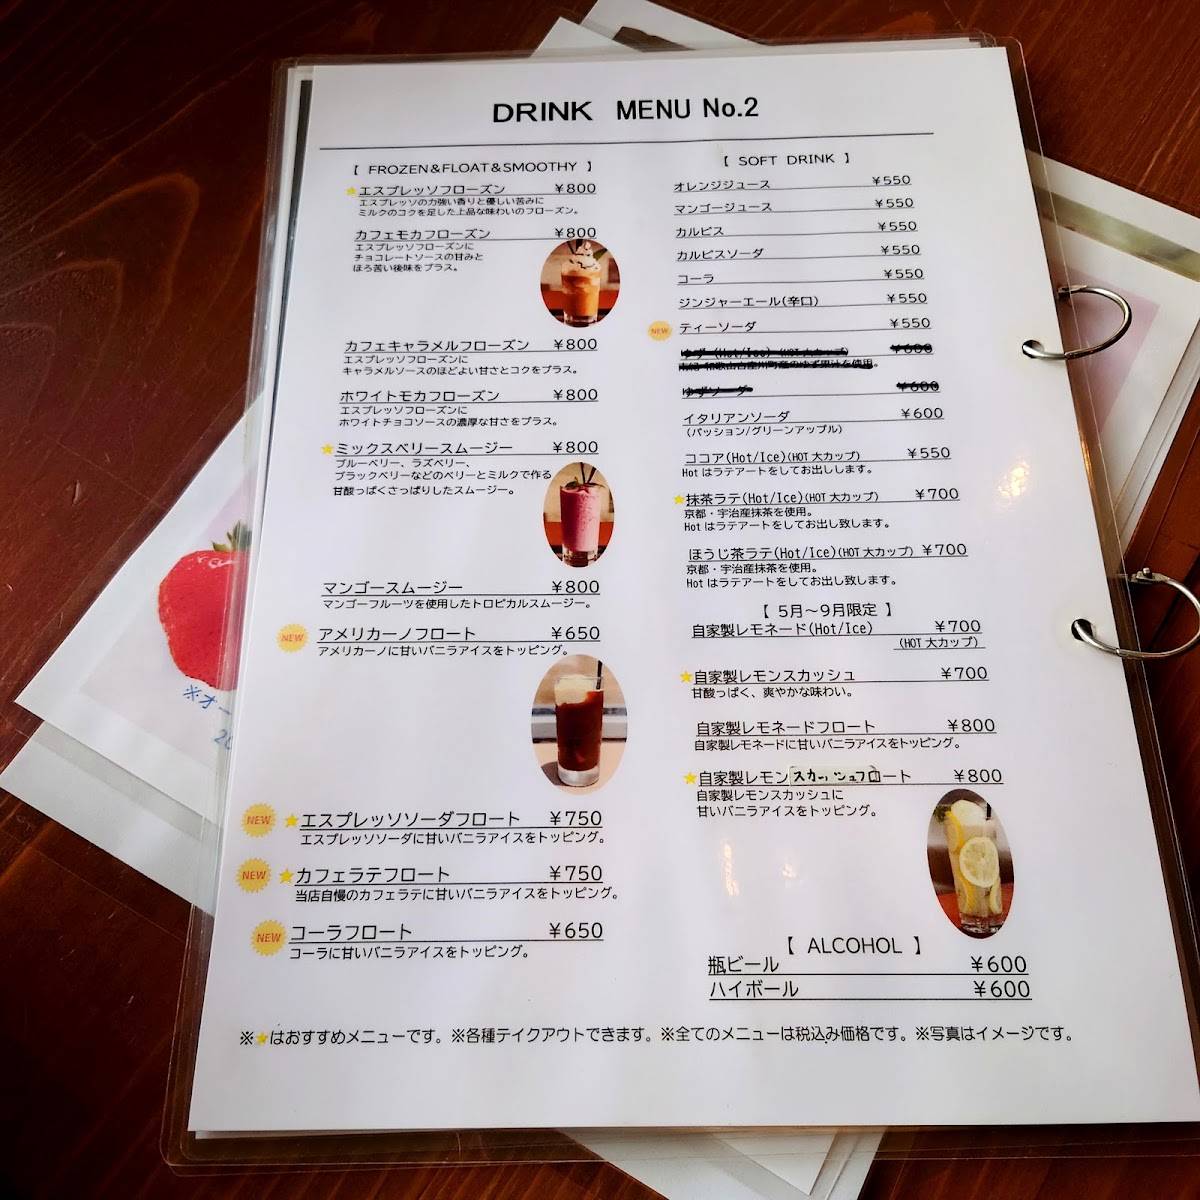 DRINK MENU No.2
【 FROZEN&FLOAT&SMOOTHY 】
★エスプレッソフローズン ¥800
エスプレッソの力強い香りと優しい苦みに
ミルクのコクを足した上品な味わいのフローズン。
カフェモカフローズン ¥800
エスプレッソフローズンに
チョコレートソースの甘みと
ほろ苦い後味をプラス。
カフェキャラメルフローズン ¥800
エスプレッソフローズンに
キャラメルソースのほどよい甘さとコクをプラス。
ホワイトモカフローズン ¥800
エスプレッソフローズンに
ホワイトチョコソースの濃厚な甘さをプラス。
★ミックスベリースムージー ¥800
ブルーベリー、ラズベリー、
ブラックベリーなどのベリーとミルクで作る
甘酸っぱくさっぱりしたスムージー。
マンゴースムージー ¥800
マンゴーフルーツを使用したトロピカルスムージー。
NEW アメリカーノフロート ¥650
アメリカーノに甘いバニラアイスをトッピング。
NEW ★エスプレッソソーダフロート ¥750
エスプレッソソーダに甘いバニラアイスをトッピング。
NEW ★カフェラテフロート ¥750
当店自慢のカフェラテに甘いバニラアイスをトッピング。
NEW コーラフロート ¥650
コーラに甘いバニラアイスをトッピング。
【 SOFT DRINK 】
オレンジジュース ¥550
マンゴージュース ¥550
カルピス ¥550
カルピスソーダ ¥550
コーラ ¥550
ジンジャーエール(辛口) ¥550
NEW ティーソーダ ¥550
ゆず (Hot/Ice) (HOT 大カップ) ¥600
和歌山古座川町産のゆず果汁を使用。
ゆずソーダ ¥600
イタリアンソーダ ¥600
(パッション/グリーンアップル)
ココア(Hot/Ice)(HOT 大カップ) ¥550
Hot はラテアートをしてお出しします。
★抹茶ラテ(Hot/Ice)(HOT 大カップ) ¥700
京都・宇治産抹茶を使用。
Hot はラテアートをしてお出し致します。
ほうじ茶ラテ(Hot/Ice)(HOT 大カップ) ¥700
京都・宇治産抹茶を使用。
Hot はラテアートをしてお出し致します。
【 5月～9月限定 】
自家製レモネード(Hot/Ice) ¥700
(HOT 大カップ)
★自家製レモンスカッシュ ¥700
甘酸っぱく、爽やかな味わい。
自家製レモネードフロート ¥800
自家製レモネードに甘いバニラアイスをトッピング。
★自家製レモンスカッシュフロート ¥800
自家製レモンスカッシュに
甘いバニラアイスをトッピング。
【 ALCOHOL 】
瓶ビール ¥600
ハイボール ¥600
※★はおすすめメニューです。※各種テイクアウトできます。※全てのメニューは税込み価格です。※写真はイメージです。
※オー
20